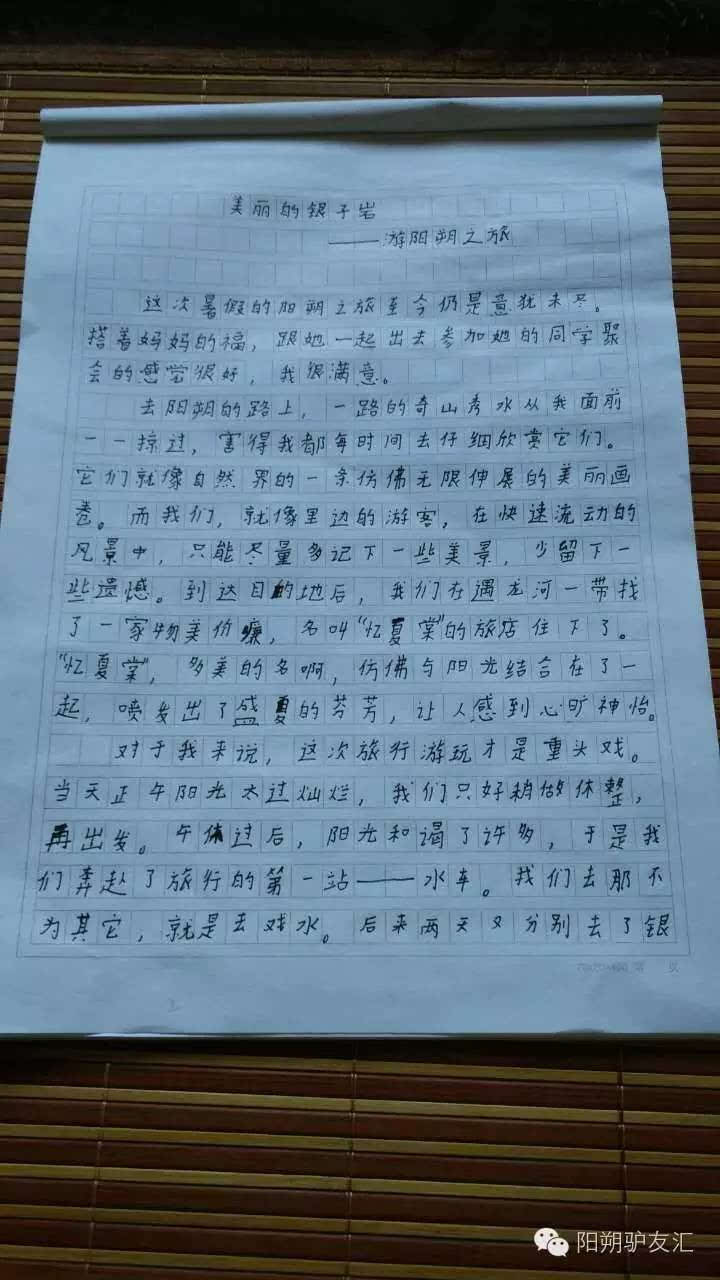 美丽的银子岩
——游阳朔之旅
这次暑假的阳朔之旅至今仍是意犹未尽。
搭着妈妈的福，跟她一起出去参加她的同学聚
会的感觉很好，我很满意。
去阳朔的路上，一路的奇山秀水从我面前
一一掠过，害得我都每时间去仔细欣赏它们。
它们就像自然界的一条仿佛无限伸展的美丽画
卷。而我们，就像里边的游客，在快速流动的
风景中，只能尽量多记下一些美景，少留下一
些遗憾。到达目的地后，我们在遇龙河一带找
了一家物美价廉，名叫“忆夏棠”的旅店住下了。
“忆夏棠”，多美的名啊，仿佛与阳光结合在了一
起，喷发出了盛夏的芬芳，让人感到心旷神怡。
对于我来说，这次旅行游玩才是重头戏。
当天正午阳光太过灿烂，我们只好稍做休整，
再出发。午休过后，阳光和谒了许多，于是我
们奔赴了旅行的第一站——水车。我们去那不
为其它，就是去戏水。后来两天又分别去了银
阳朔驴友汇